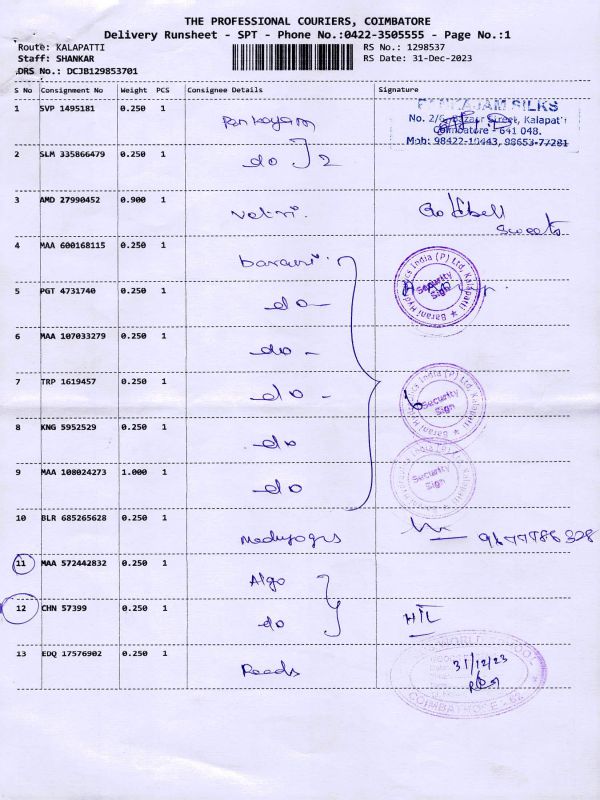 THE PROFESSIONAL COURIERS, COIMBATORE
Delivery Runsheet - SPT - Phone No.:0422-3505555 - Page No.:1
Route: KALAPATTI
RS No.: 1298537
Staff: SHANKAR
RS Date: 31-Dec-2023
DRS No.: DCJB129853701
S No Consignment No Weight PCS Consignee Details Signature
1 SVP 1495181 0.250 1
SILKS
No. 2/6, Bazaar Street, Kalapatti
Coimbatore - 641 048.
2 SLM 335866479 0.250 1 do 2
3 AMD 27990452 0.900 1 Vetri. Goldbell
Sweets
4 MAA 600168115 0.250 1
Barani Hydraulics India (P) Ltd, Kalapatti
Security
Sign
5 PGT 4731740 0.250 1 do
6 MAA 107033279 0.250 1 do
7 TRP 1619457 0.250 1 do
Security
Sign
8 KNG 5952529 0.250 1 do
9 MAA 108024273 1.000 1 do
Security
Sign
10 BLR 685265628 0.250 1
11 MAA 572442832 0.250 1 Algo
12 CHN 57399 0.250 1 do
13 EDQ 17576902 0.250 1 Reeds 31/12/23
COIMBATORE - 62